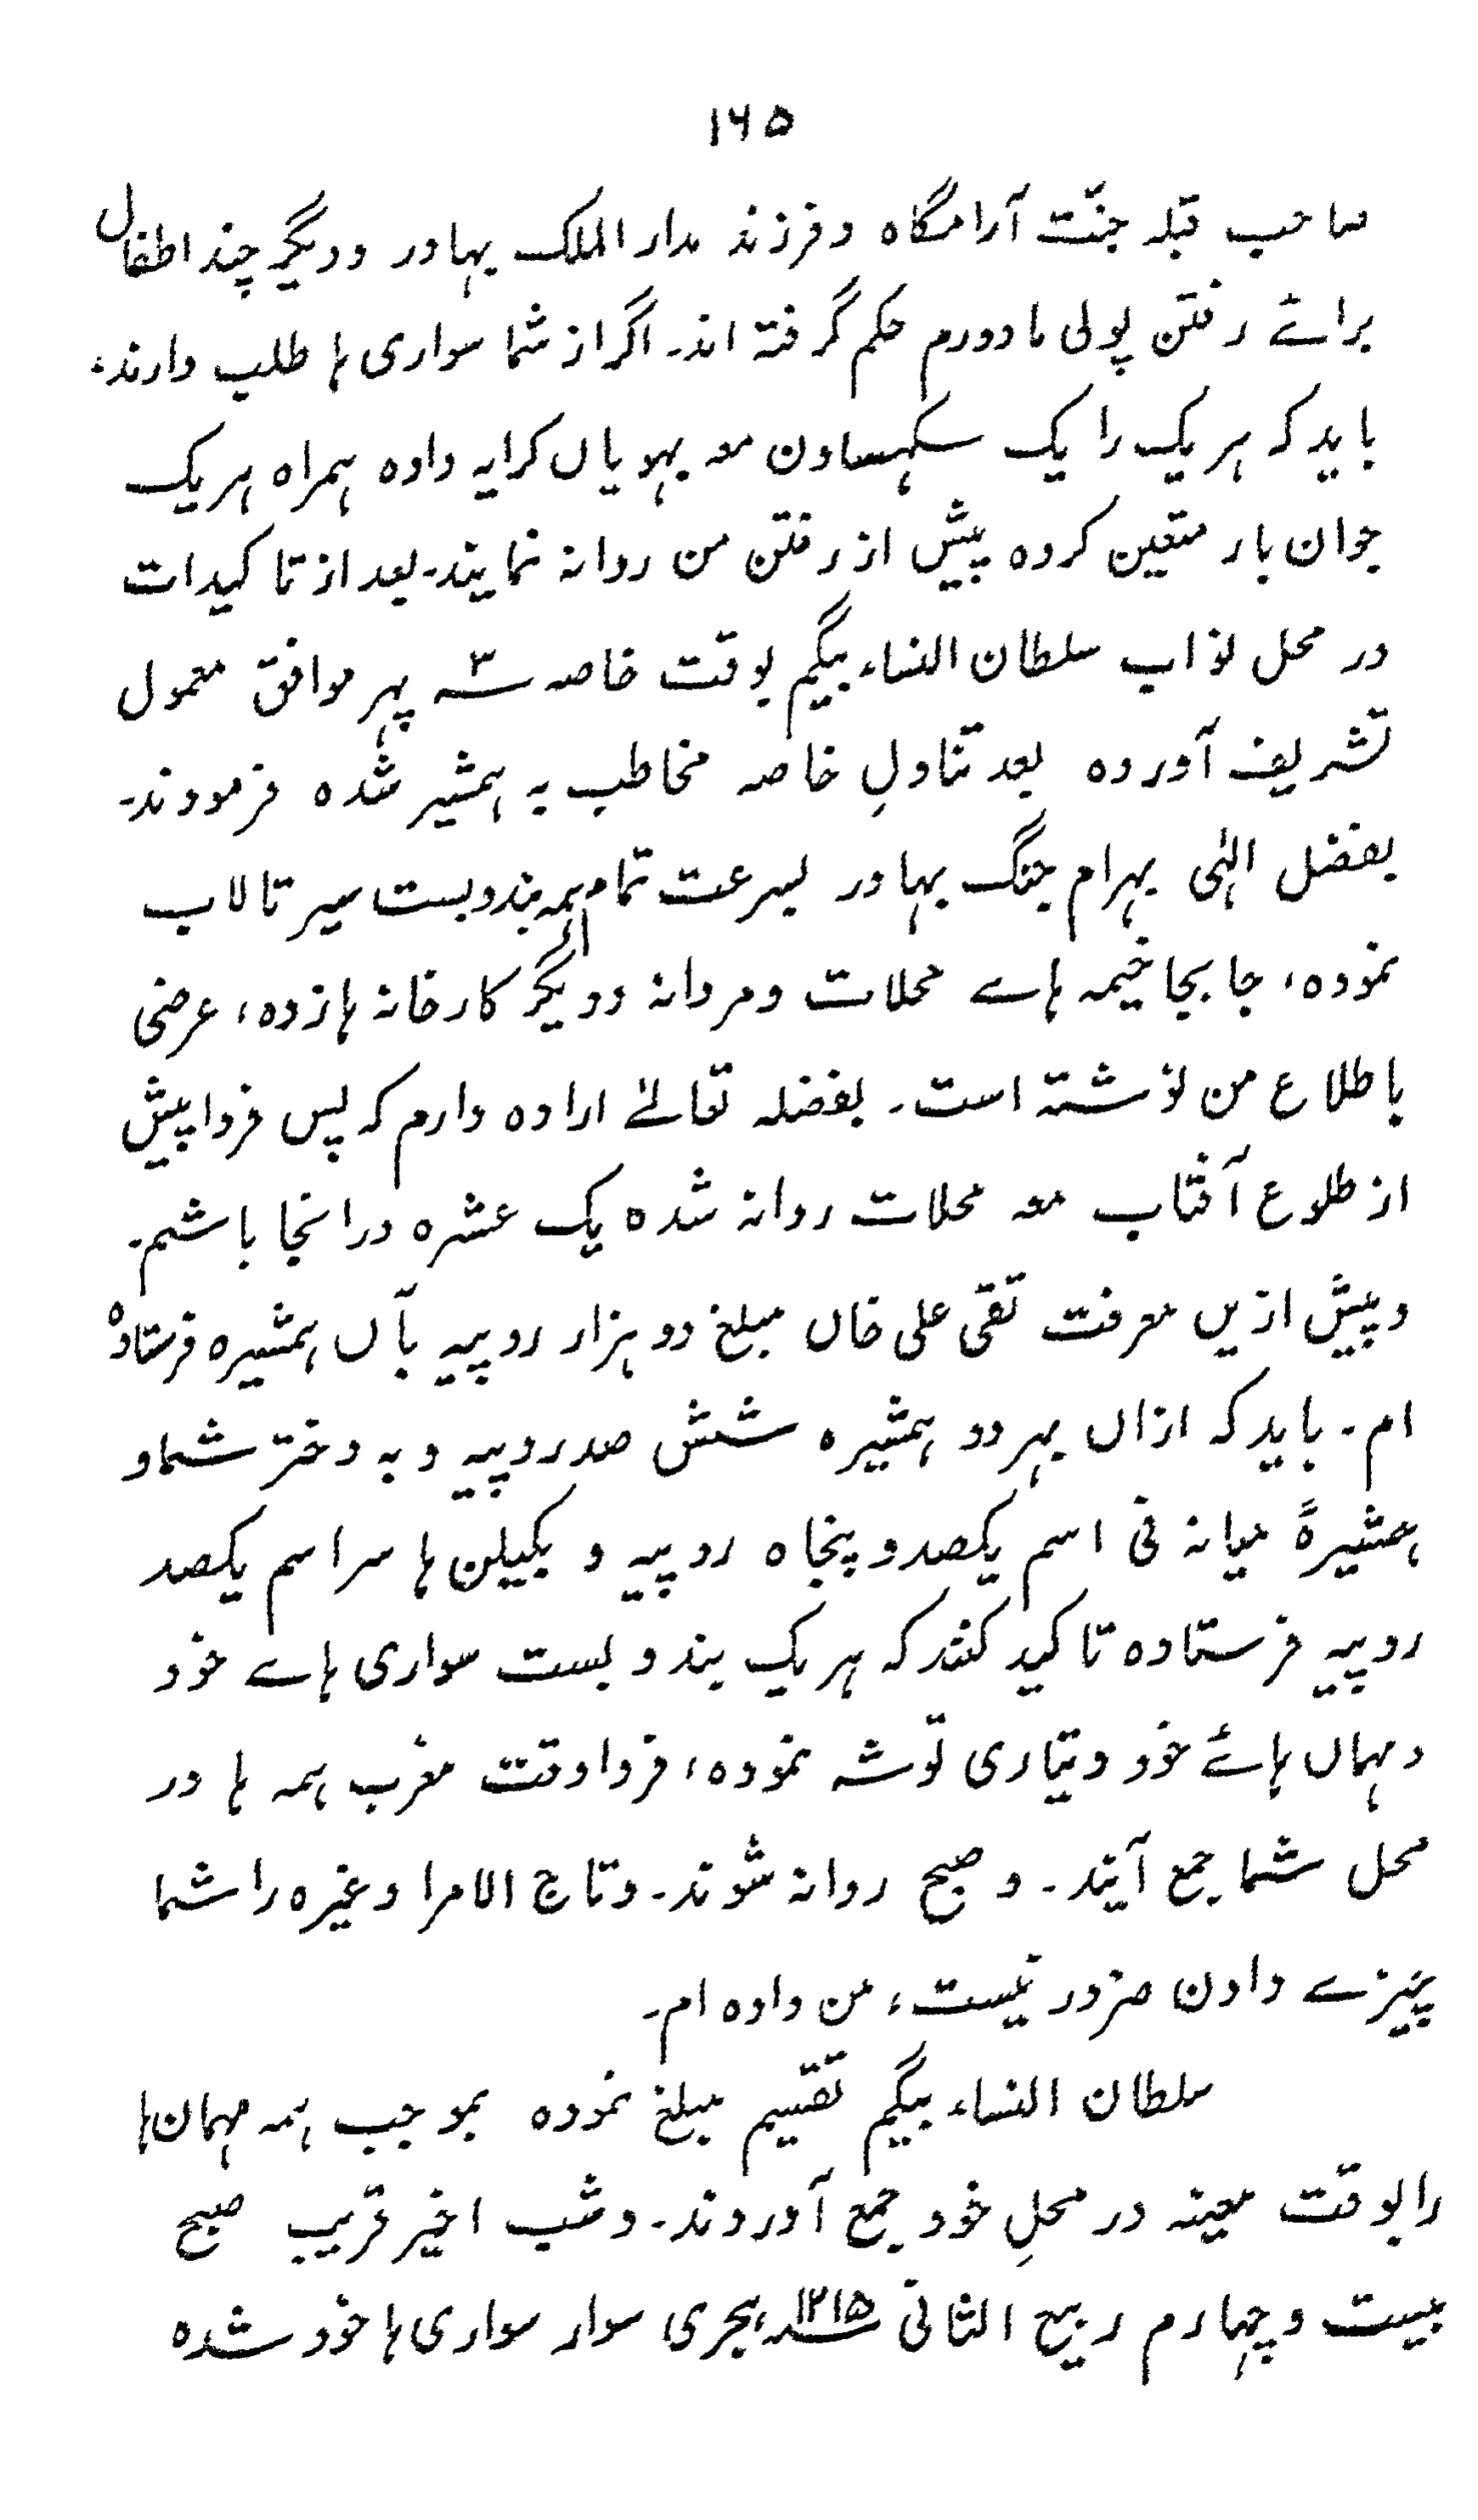 ۱۶۵
صاحب قبلہ جنّت آرامگاہ و فرزند مدار الملک بہادر و دیگر چند اطفال
برائے رفتن پولی مادورم حکم گرفتہ اند۔ اگر از شما سواری ہا طلب دارند،
باید کہ ہر یک را یک سکہساون معہ بہویاں کرایہ دادہ ہمراہ ہر یک
جوان بار متعین کردہ پیش از رفتن من روانہ نمایند۔ بعد از تاکیدات
در محل نواب سلطان النساء بیگم بوقت خاصہ سہ ۳ پہر موافق معمول
تشریف آوردہ بعد تناولِ خاصہ مخاطب بہ ہمشیر شدہ فرمودند۔
بفضل الہٰی بہرام جنگ بہادر بسرعت تمام ہمہ بندوبست سیر تالاب
نمودہ، جا بجا خیمہ ہاے محلات و مردانہ و دیگر کارخانہ ہا زدہ، عرضی
باطلاع من نوشتہ است۔ بفضلہ تعالےٰ ارادہ دارم کہ پس فردا پیش
از طلوع آفتاب معہ محلات روانہ شدہ یک عشرہ در انجا باشم۔
و پیش ازیں معرفت تقی علی خاں مبلغ دو ہزار روپیہ بآں ہمشیرہ فرستادہ
ام۔ باید کہ ازاں بہر دو ہمشیرہ شش صد روپیہ و بہ دختر شما و
ہمشیرۂ میانہ فی اسم یکصد و پنجاہ روپیہ و بکیلن ہا سر اسم یکصد
روپیہ فرستادہ تاکید کنند کہ ہر یک بند و بست سواری ہاے خود
و مہماں ہائے خود و تیاری توشہ نمودہ، فردا وقت مغرب ہمہ ہا در
محل شما جمع آیند۔ و صبح روانہ شوند۔ و تاج الامرا و غیرہ را شما
چیزے دادن ضرور نیست، من دادہ ام۔
سلطان النساء بیگم تقسیم مبلغ نمودہ بموجب ہمہ مہمان ہا
را بوقت معینہ در محلِ خود جمع آوردند۔ و شب اخیر قریب صبح
بیست و چہارم ربیع الثانی ۱۲۱۵ سنہ ہجری سوار سواری ہا خود شدہ